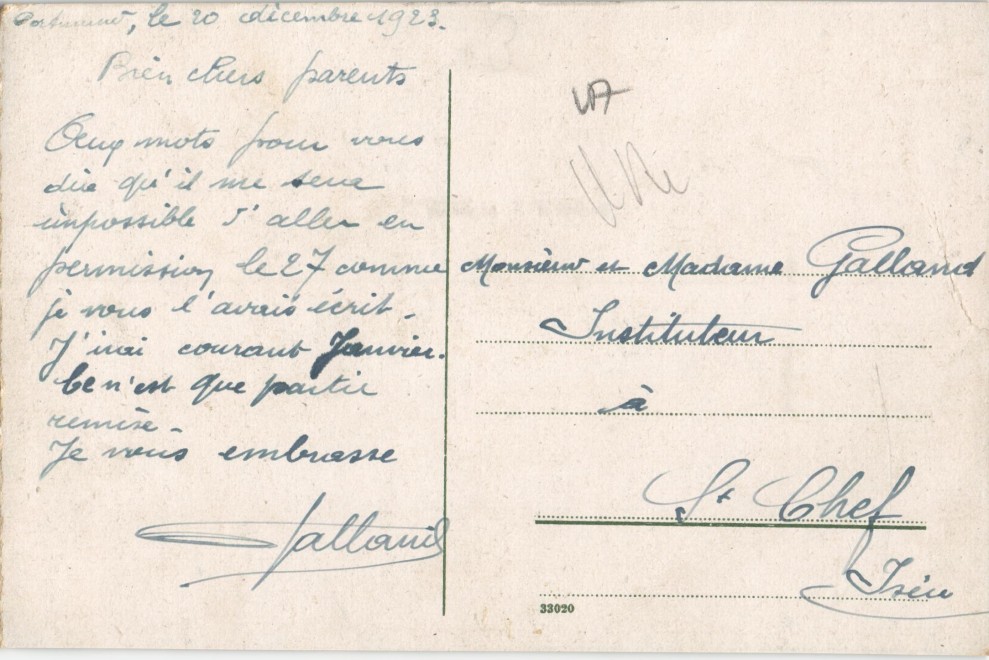 le 20 décembre 1923.
Bien chers parents
Deux mots pour vous
dire qu'il me sera
impossible d'aller en
permission le 27 comme
je vous l'avais écrit.
J'irai courant Janvier.
Ce n'est que partie
remise.
Je vous embrasse
Galland
Monsieur et Madame Galland
Instituteur
à
St Chef
Isère
33020